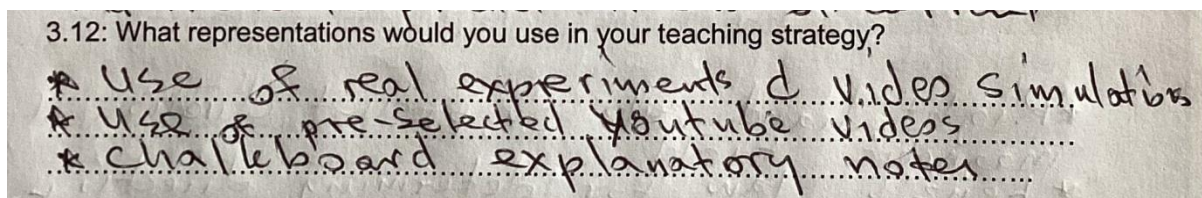 3.12: What representations would you use in your teaching strategy?
* Use of real experiments & video simulations
* Use of pre-selected Youtube videos
* Challeboard explanatory notes